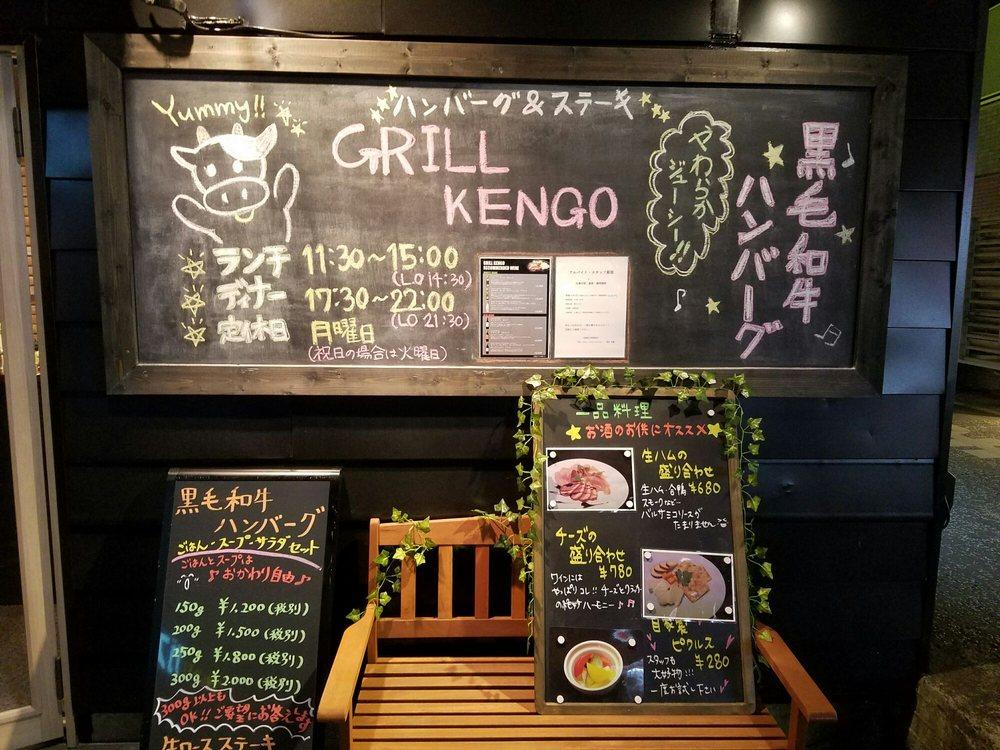 Yummy!!
ハンバーグ&ステーキ
GRILL
KENGO
やわらか
ジューシー!!
黒毛和牛
ハンバーグ
ランチ 11:30~15:00
(LO 14:30)
ディナー 17:30~22:00
(LO 21:30)
定休日 月曜日
(祝日の場合は火曜日)
GRILL KENGO
RECOMMENDED MENU
アルバイト・スタッフ募集
黒毛和牛
ハンバーグ
ごはん・スープ・サラダセット
ごはんとスープは
おかわり自由♪
150g ¥1.200(税別)
200g ¥1.500(税別)
250g ¥1.800(税別)
300g ¥2.000(税別)
300g以上も
OK!!ご要望にお答えします
牛ロースステーキ
一品料理
お酒のお供にオススメ
生ハムの
盛り合わせ
生ハム・合鴨 ¥680
スモークなど…
バルサミコソースが
たまりません
チーズの
盛り合わせ
¥780
ワインには
やっぱりコレ!!チーズとクラッカー
ハーモニー♪
自家製
ピクルス
¥280
スタッフも
大好物!!!
一度お試し下さい